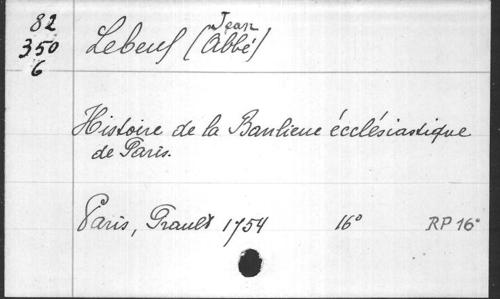 82
350
6
Jean
Lebeuf (Abbé)
Histoire de la Banlieue écclésiastique
de Paris.
Paris, Prault 1754 16° RP 16°